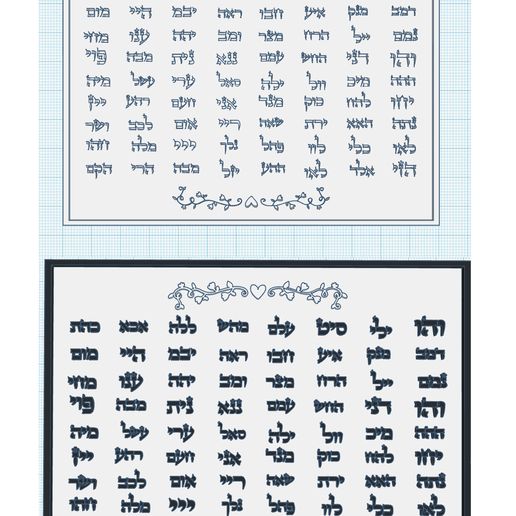 דמב מנק איע חבו ראה יבמ היי מום
נמם ייל הרח מצר ומב יהה ענו מחי
והו דני החש עמם ננא נית מבה פוי
ההה מיכ וול ילה סאל ערי עשל מיה
יחו להח כוק מנד אני חעם רהע ייז
נתה האא ירת שאה ריי אום לכב ושר
לאו כלי לוו פהל נלך ייי מלה חהו
הזי אלד לאו ההע יזל מבה הרי הקם
והו ילי סיט עלם מהש ללה אכא כהת
דמב מנק איע חבו ראה יבמ היי מום
נמם ייל הרח מצר ומב יהה ענו מחי
והו דני החש עמם ננא נית מבה פוי
ההה מיכ וול ילה סאל ערי עשל מיה
יחו להח כוק מנד אני חעם רהע ייז
נתה האא ירת שאה ריי אום לכב ושר
לאו כלי לוו פהל נלך ייי מלה חהו